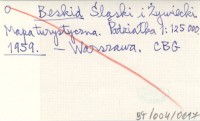 Beskid Śląski i Żywiecki
Mapa turystyczna. Podziałka 1:125 000
1959. — Warszawa. CBG